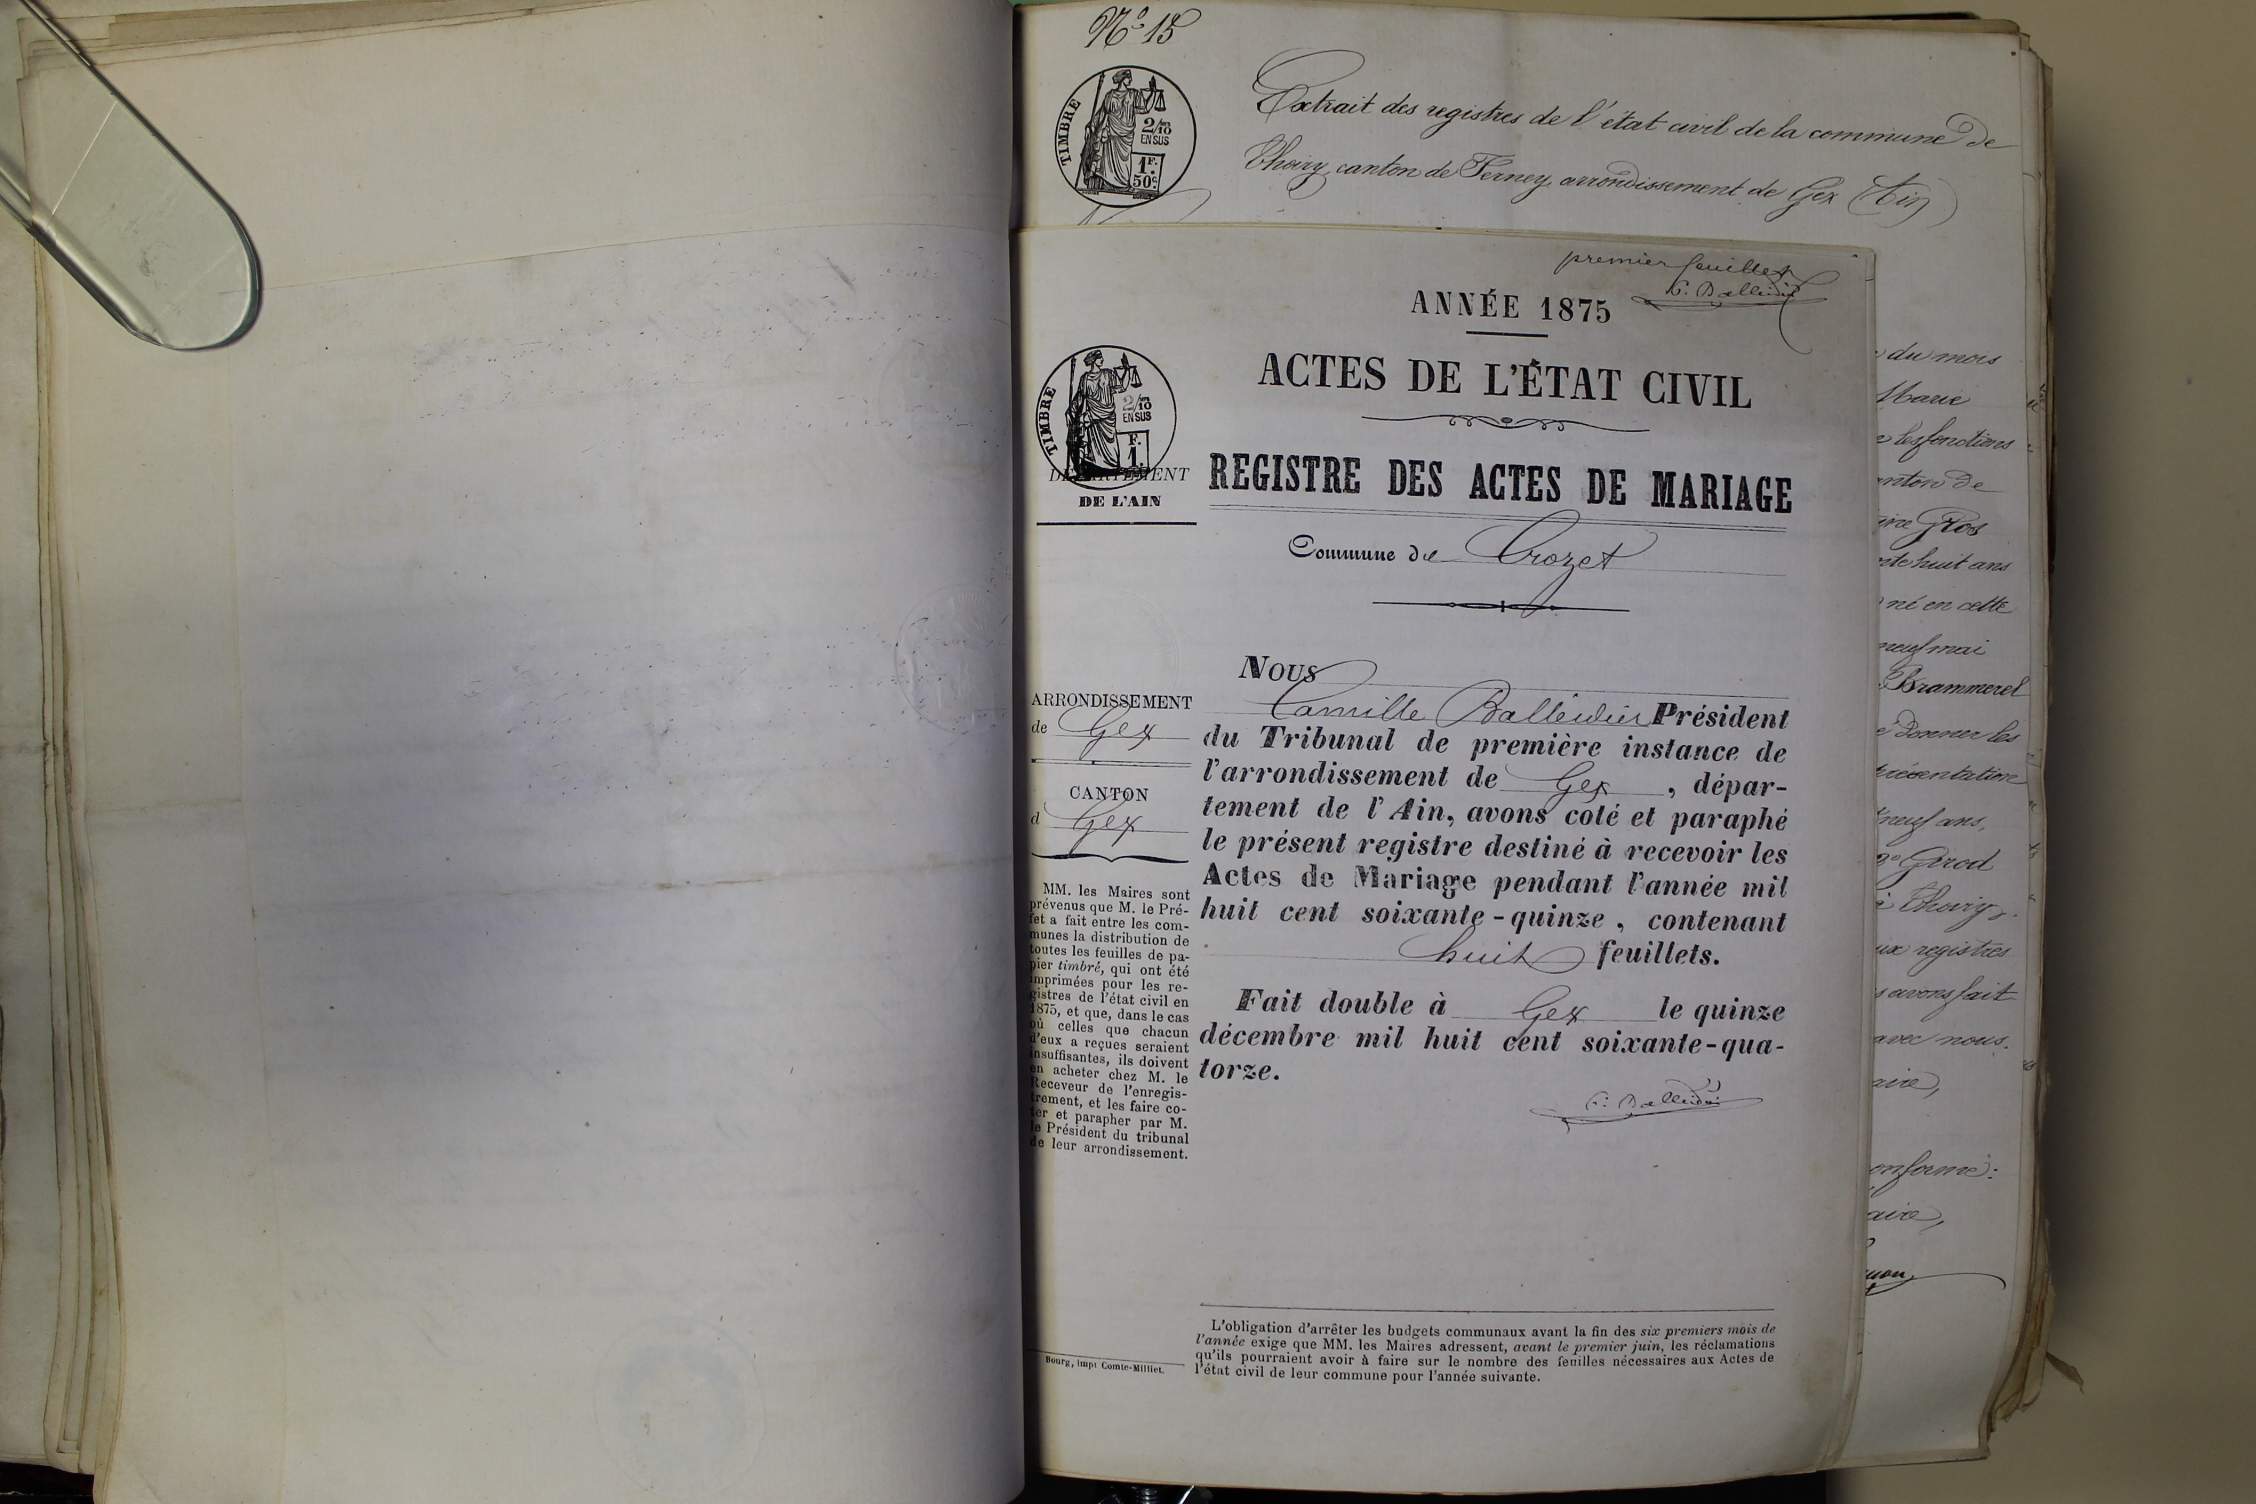 N° 15
TIMBRE
2/10
EN SUS
1F.
50c.
Extrait des registres de l'état civil de la commune de
Thoiry, canton de Ferney, arrondissement de Gex (Ain)
premier feuillet
C. Balleidier
ANNÉE 1875
ACTES DE L'ÉTAT CIVIL
TIMBRE
2/10
EN SUS
F.
1.
DÉPARTEMENT
DE L'AIN
REGISTRE DES ACTES DE MARIAGE
Commune de Crozet
ARRONDISSEMENT
de Gex
CANTON
d Gex
MM. les Maires sont
prévenus que M. le Pré-
fet a fait entre les com-
munes la distribution de
toutes les feuilles de pa-
pier timbré, qui ont été
imprimées pour les re-
gistres de l'état civil en
1875, et que, dans le cas
où celles que chacun
d'eux a reçues seraient
insuffisantes, ils doivent
en acheter chez M. le
Receveur de l'enregis-
trement, et les faire co-
ter et parapher par M.
le Président du tribunal
de leur arrondissement.
Bourg, impr Comte-Milliet.
NOUS
Camille Balleidier Président
du Tribunal de première instance de
l'arrondissement de Gex, dépar-
tement de l'Ain, avons coté et paraphé
le présent registre destiné à recevoir les
Actes de Mariage pendant l'année mil
huit cent soixante-quinze, contenant
huit feuillets.
Fait double à Gex le quinze
décembre mil huit cent soixante-qua-
torze.
C. Balleidier
L'obligation d'arrêter les budgets communaux avant la fin des six premiers mois de
l'année exige que MM. les Maires adressent, avant le premier juin, les réclamations
qu'ils pourraient avoir à faire sur le nombre des feuilles nécessaires aux Actes de
l'état civil de leur commune pour l'année suivante.
du mois
Marie
les fonctions
anton de
Gros
huit ans
né en cette
neuf mai
Brammerel
donner les
présentation
neuf ans,
Girod
à Thoiry,
ux registres
avons fait
avec nous.
aire,
onforme:
aire,